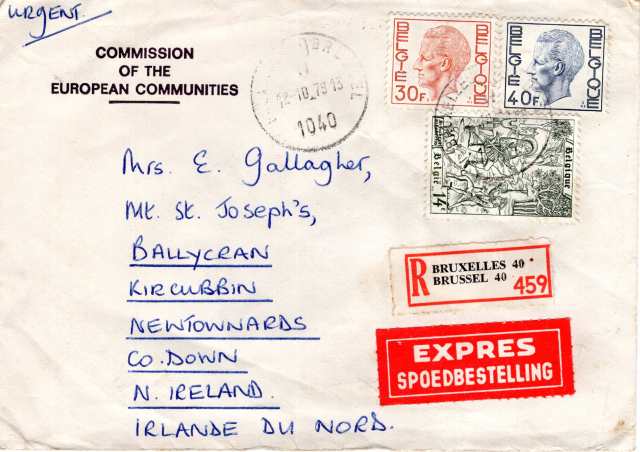 URGENT.
COMMISSION
OF THE
EUROPEAN COMMUNITIES
12-10_78 13
1040
BELGIE BELGIQUE
30F.
BELGIE BELGIQUE
40F.
België Belgique
14F
Mrs. E. Gallagher,
Mt. St. Joseph's,
BALLYCRAN
KIRCUBBIN
NEWTOWNARDS
CO. DOWN
N. IRELAND.
IRLANDE DU NORD.
R BRUXELLES 40 *
BRUSSEL 40 459
EXPRES
SPOEDBESTELLING